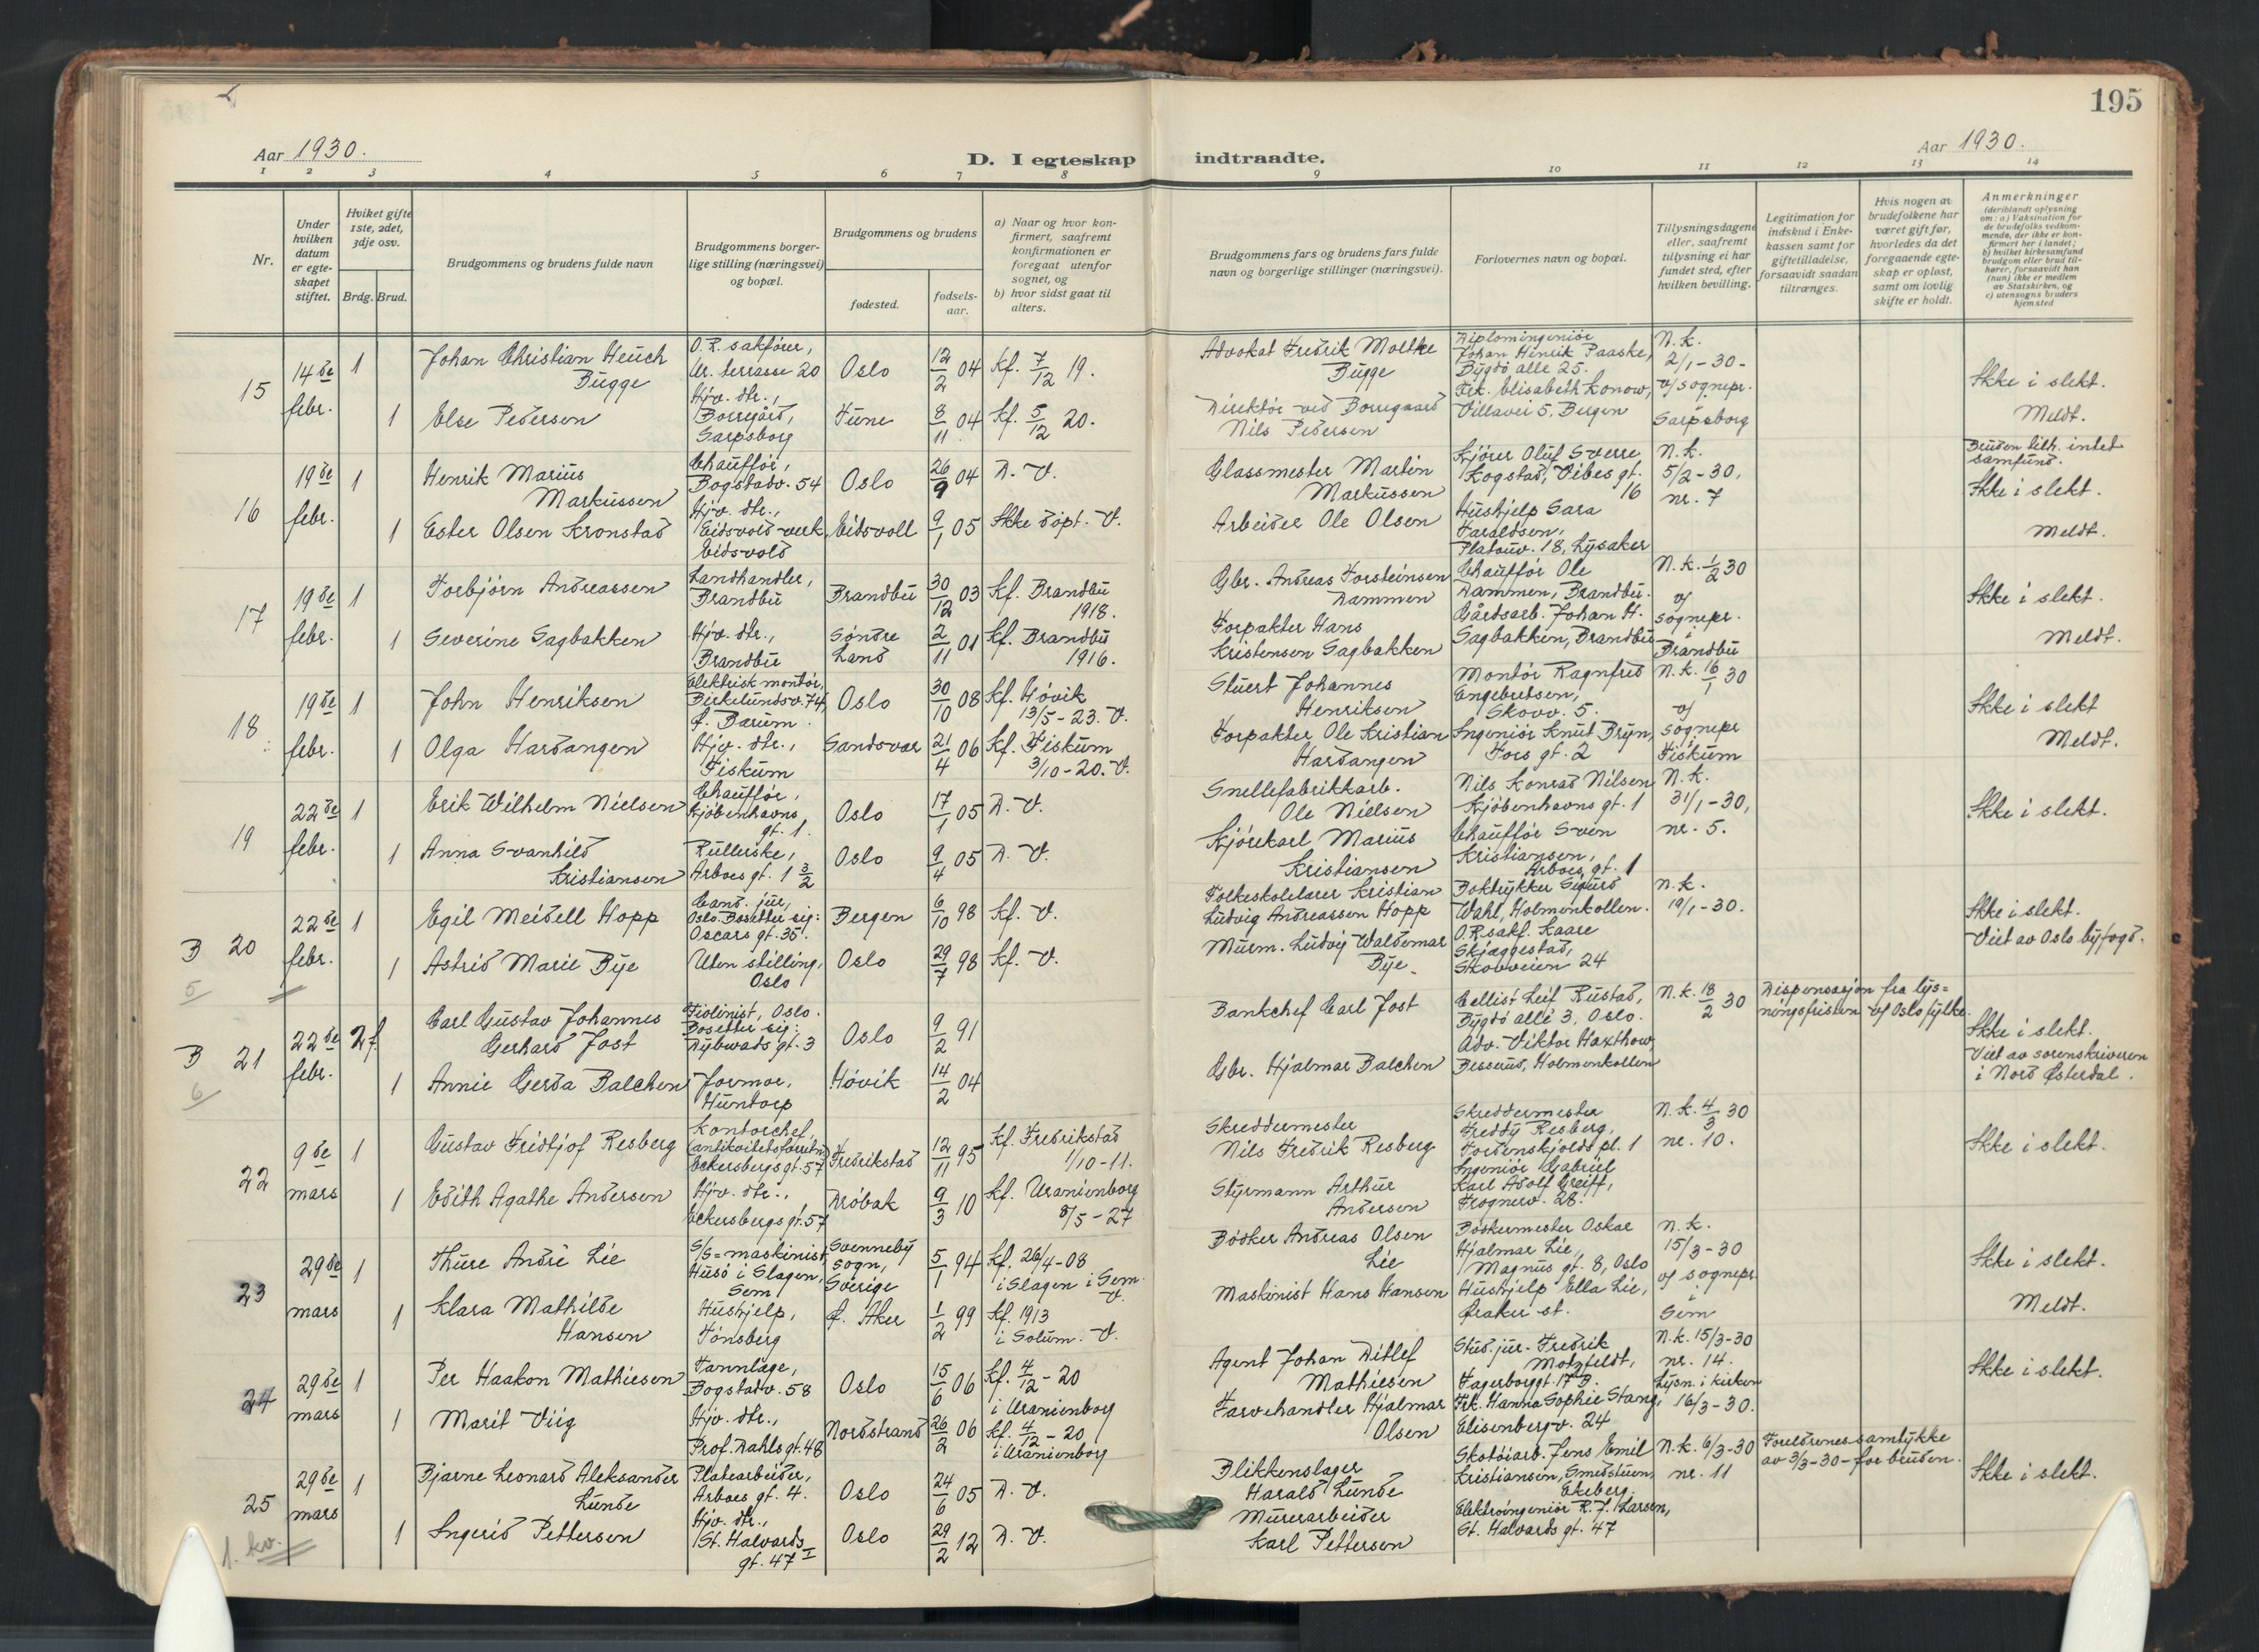 195
Aar 1930.
D. I egteskap indtraadte.
Aar 1930.
1 2 3 4 5 6 7 8 9 10 11 12 13 14
Nr.
Under hvilken datum er egteskapet stiftet.
Hviket gifte 1ste, 2det, 3dje osv.
Brdg. Brud.
Brudgommens og brudens fulde navn
Brudgommens borgerlige stilling (næringsvei) og bopæl.
Brudgommens og brudens
fødested.
fødselsaar.
a) Naar og hvor konfirmert, saafremt konfirmationen er foregaat utenfor sognet, og
b) hvor sidst gaat til alters.
Brudgommens fars og brudens fars fulde navn og borgerlige stillinger (næringsvei).
Forlovernes navn og bopæl.
Tillysningsdagene eller, saafremt tillysning ei har fundet sted, efter hvilken bevilling.
Legitimation for indskud i Enkekassen samt for giftetilladelse, forsaavidt saadan tiltrænges.
Hvis nogen av brudefolkene har været gift før, hvorledes da det foregaaende egteskap er opløst, samt om lovlig skifte er holdt.
Anmerkninger
(deriblandt oplysning om: a) Vaksination for de brudefolks vedkommende, der ikke er konfirmert her i landet; b) hvilket kirkesamfund brudgom eller brud tilhører, forsaavidt han (hun) ikke er medlem av Statskirken, og c) utensogns bruders hjemsted
15
14de febr.
1 Johan Christian Heuch Bugge
O.R. sakfører, Ur. terrasse 20
Oslo 12/2 04 Kf. 7/12 19.
Advokat Fredrik Moltke Bugge
Diplomingeniør Johan Henrik Paaske, Bygdø alle 25.
N.k. 2/1-30- v/ sognepr. i Sarpsborg
Ikke i slekt.
1 Else Pedersen
Hjv. dtr., Borregård, Sarpsborg
Tune 8/11 04 Kf. 5/12 20.
Direktør ved Borregaard Nils Pedersen
Frk. Elisabeth Konow, Villavei 5, Bergen
Meldt.
16
19de febr.
1 Henrik Marius Markussen
Chauffør, Bogstadv. 54
Oslo 26/9 04 D. V.
Glassmester Martin Markussen
Kjører Oluf Sverre Kogstad, Vibes gt. 16
N.k. 5/2-30, nr. 7
Bruden tilh. intet samfund.
Ikke i slekt.
1 Ester Olsen Kronstad
Hjv. dtr., Eidsvold verk, Eidsvold
Eidsvoll 9/1 05 Ikke døpt. V.
Arbeider Ole Olsen
Hushjelp Sara Haraldsen, Platouv. 18, Lysaker
Meldt.
17
19de febr.
1 Torbjørn Andreassen
Landhandler, Brandbu
Brandbu 30/12 03 Kf. Brandbu 1918.
Gbr. Andreas Torsteinsen Dammen
Chauffør Ole Dammen, Brandbu.
N.k. 1/2 30 v/ sognepr. i Brandbu
Ikke i slekt.
1 Severine Sagbakken
Hjv. dtr., Brandbu
Søndre Land 2/11 01 Kf. Brandbu 1916.
Forpakter Hans Kristensen Sagbakken
Gårdsarb. Johan H. Sagbakken, Brandbu
Meldt.
18
19de febr.
1 John Henriksen
Elektrisk montør, Birkelundsv. 74, Ø. Bærum.
Oslo 30/10 08 Kf. Høvik 13/5-23. V.
Stuert Johannes Henriksen
Montør Ragnfred Engebretsen, Skovv. 5.
N.k. 16/1 30 v/ sognepr i Fiskum
Ikke i slekt
1 Olga Hardangen
Hjv. dtr., Fiskum
Sandsvær 21/4 06 Kf. Fiskum 3/10-20. V.
Forpakter Ole Kristian Hardangen
Ingeniør Knut Bryn, Fors gt. 2
Meldt.
19
22de febr.
1 Erik Wilhelm Nielsen
Chauffør, Kjøbenhavns gt. 1.
Oslo 17/1 05 D. V.
Snellefabrikkarb. Ole Nielsen
Nils Konrad Nilsen Kjøbenhavns gt. 1
N.k. 31/1-30, nr. 5.
Ikke i slekt.
1 Anna Svanhild Kristiansen
Rullerske, Arbos gt. 1 3/2
Oslo 9/4 05 D. V.
Kjørekarl Marius Kristiansen
Chauffør Sven Kristiansen, Arbos gt. 1
B 20
5
22de febr.
1 Egil Meidell Hopp
Cand. jur, Oslo. Bosetter sig: Oscars gt. 35.
Bergen 6/10 98 Kf. V.
Folkeskolelærer Kristian Ludvig Andreassen Hopp
Boktrykker Sigurd Wahl, Holmenkollen.
N.k. 19/1-30.
Ikke i slekt.
Viet av Oslo byfogd.
1 Astrid Marie Bye
Uten stilling, Oslo
Oslo 29/7 98 Kf. V.
Murm. Ludvig Waldemar Bye
O.R. sakf. Kaare Skjæggestad, Skovveien 24
B 21
6
22de febr.
2 f Carl Gustav Johannes Gerhard Jost
Fiolinist, Oslo. Bosetter sig: Dybwads gt. 3
Oslo 9/2 91
Bankchef Carl Jost
Cellist Leif Rustad, Bygdø allé 3, Oslo.
N.k. 18/2 30
Dispensasjon fra lysningsfristen v/ Oslo fylke.
Ikke i slekt.
Viet av sorenskriveren i Nord Østerdal.
1 Annie Gerda Balchen
Jormor, Hundorp
Høvik 14/2 04
Gbr. Hjalmar Balchen
Adv. Viktor Haxthow Besserud, Holmenkollen
22
9de mars
1 Gustav Fridtjof Resberg
Kontorchef, (antikvitetsforretn) Eckersbergs gt. 57
Fredrikstad 12/11 95 Kf. Fredrikstad 1/10-11.
Skreddermester Nils Fredrik Resberg
Skreddermester Freddy Resberg, Tordenskjolds pl. 1
N.k. 4/3 30 nr. 10.
Ikke i slekt.
1 Edith Agathe Andersen
Hjv. dtr., Eckersbergs gt. 57
Drøbak 9/3 10 Kf. Uranienborg 8/5-27
Styrmann Arthur Andersen
Ingeniør Gabriel Karl Adolf Greiff, Frognerv. 28.
23
29de mars
1 Thure André Lie
S/S=maskinist, Husø i Slagen, Sem
Svenneby sogn, Sverige 5/1 94 Kf. 26/4-08 i Slagen i Sem. V.
Bødker Andreas Olsen Lie
Bødkermester Oskar Hjalmar Lie, Magnus gt. 8, Oslo
N.k. 15/3-30 v/ sognepr. i Sem
Ikke i slekt.
1 Klara Mathilde Hansen
Hushjelp, Tønsberg
Ø. Aker 1/2 99 Kf. 1913 i Solum. V.
Maskinist Hans Hansen
Hushjelp Ella Lie, Øraker st.
Meldt.
24
29de mars
1 Per Haakon Mathiesen
Tannlæge, Bogstadv. 58
Oslo 15/6 06 Kf. 4/12-20 i Uranienborg
Agent Johan Ditlef Mathiesen
Stud. jur. Fredrik Motzfeldt, Fagerborggt. 17 B.
N.k. 15/3-30 nr. 14. Lysn. i kirken 16/3-30.
Ikke i slekt.
1 Marit Viig
Hjv. dtr., Prof. Dahls gt. 48
Nordstrand 26/2 06 Kf. 4/12-20 i Uranienborg
Farvehandler Hjalmar Olsen
Frk. Hanna Sophie Stang, Elisenberg v. 24
25
29de mars
1 Bjarne Leonard Aleksander Lunde
Platearbeider, Arboes gt. 4.
Oslo 24/6 05 D. V.
Blikkenslager Harald Lunde
Skotøiarb. Jens Emil Kristiansen, Smedstuen, Ekeberg.
N.k. 6/3-30 nr. 11
Foreldrenes samtykke av 3/3-30 - for bruden.
Ikke i slekt.
1 Ingerid Pettersen
Hjv. dtr., St. Halvards gt. 47 I
Oslo 29/2 12 D. V.
Murerarbeider Karl Pettersen
Elektroingeniør R. J. Larsen, St. Halvards gt. 47
1. kv.